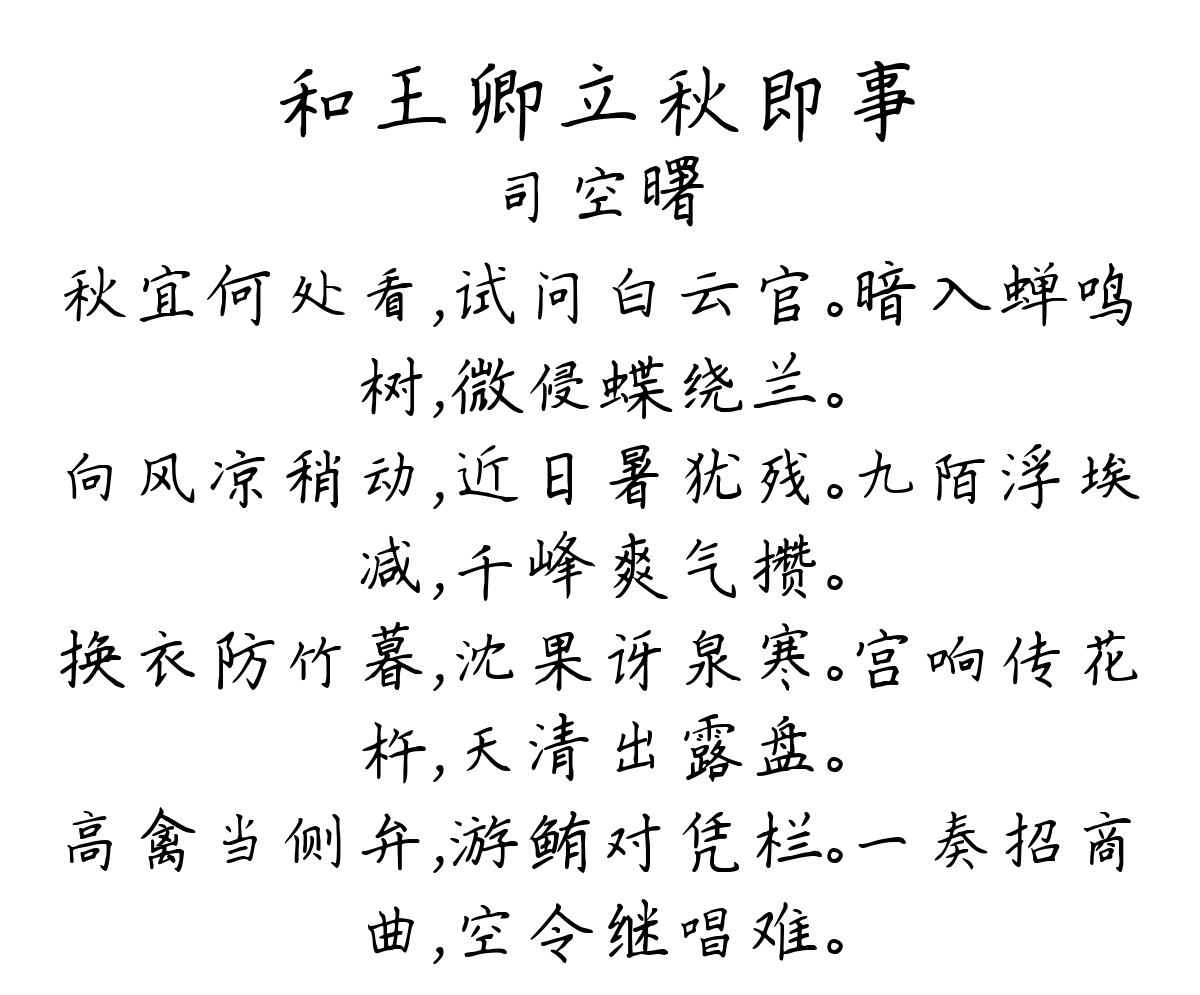 和王卿立秋即事
司空曙
秋宜何处看,试问白云官。暗入蝉鸣
树,微侵蝶绕兰。
向风凉稍动,近日暑犹残。九陌浮埃
减,千峰爽气攒。
换衣防竹暮,沈果讶泉寒。宫响传花
杵,天清出露盘。
高禽当侧弁,游鲔对凭栏。一奏招商
曲,空令继唱难。